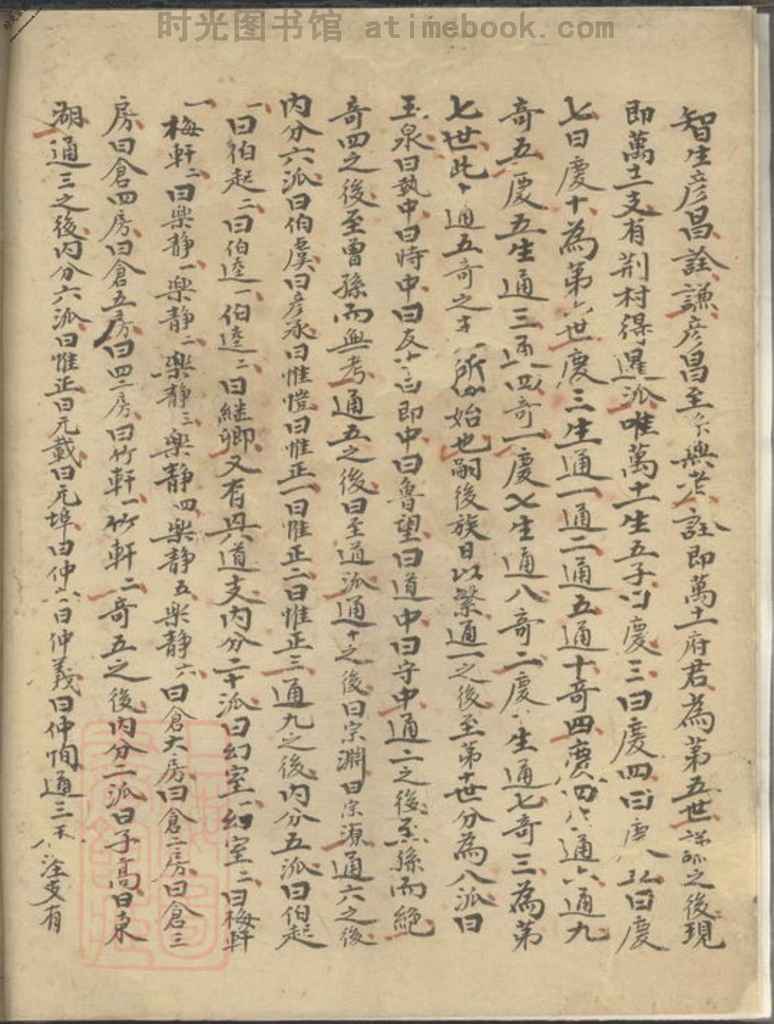 时光图书馆 atimebook.com
智生彦昌詮謙彦昌至曾興考詮即萬土府君為第五世之後現
即萬土支有荆村得暹派唯萬土生五子曰慶三曰慶四曰慶八曰慶
七曰慶十為第六世慶三生通一通二通五通十奇四慶四生通六通九
奇五慶五生通三通四奇一慶七生通八奇二慶十生通七奇三為第
七世此十通五奇之所由始也嗣後族日以繁通一之後至第十世分為八派曰
玉泉曰執中曰時中曰友十曰即中曰魯望曰道中曰守中通二之後至孫而絕
奇四之後至曾孫而無考通五之後曰至道派通十之後曰宗淵曰宗源通六之後
内分六派曰伯虞曰彦承曰惟愷曰惟正一曰惟正二曰惟正三通九之後内分五派曰伯起
一曰伯起二曰伯逵一伯逵二曰継卿又有與道支内分二十派曰幻室一幻室二曰梅軒
一梅軒二曰樂静一樂静二樂静三樂静四樂静五樂静六曰倉大房曰倉二房曰倉三
房曰倉四房曰倉五房曰四二房曰竹軒一竹軒二奇五之後内分二派曰子高曰東
湖通三之後内分六派曰惟正曰元載曰元埠曰仲六曰仲義曰仲恂通三支有